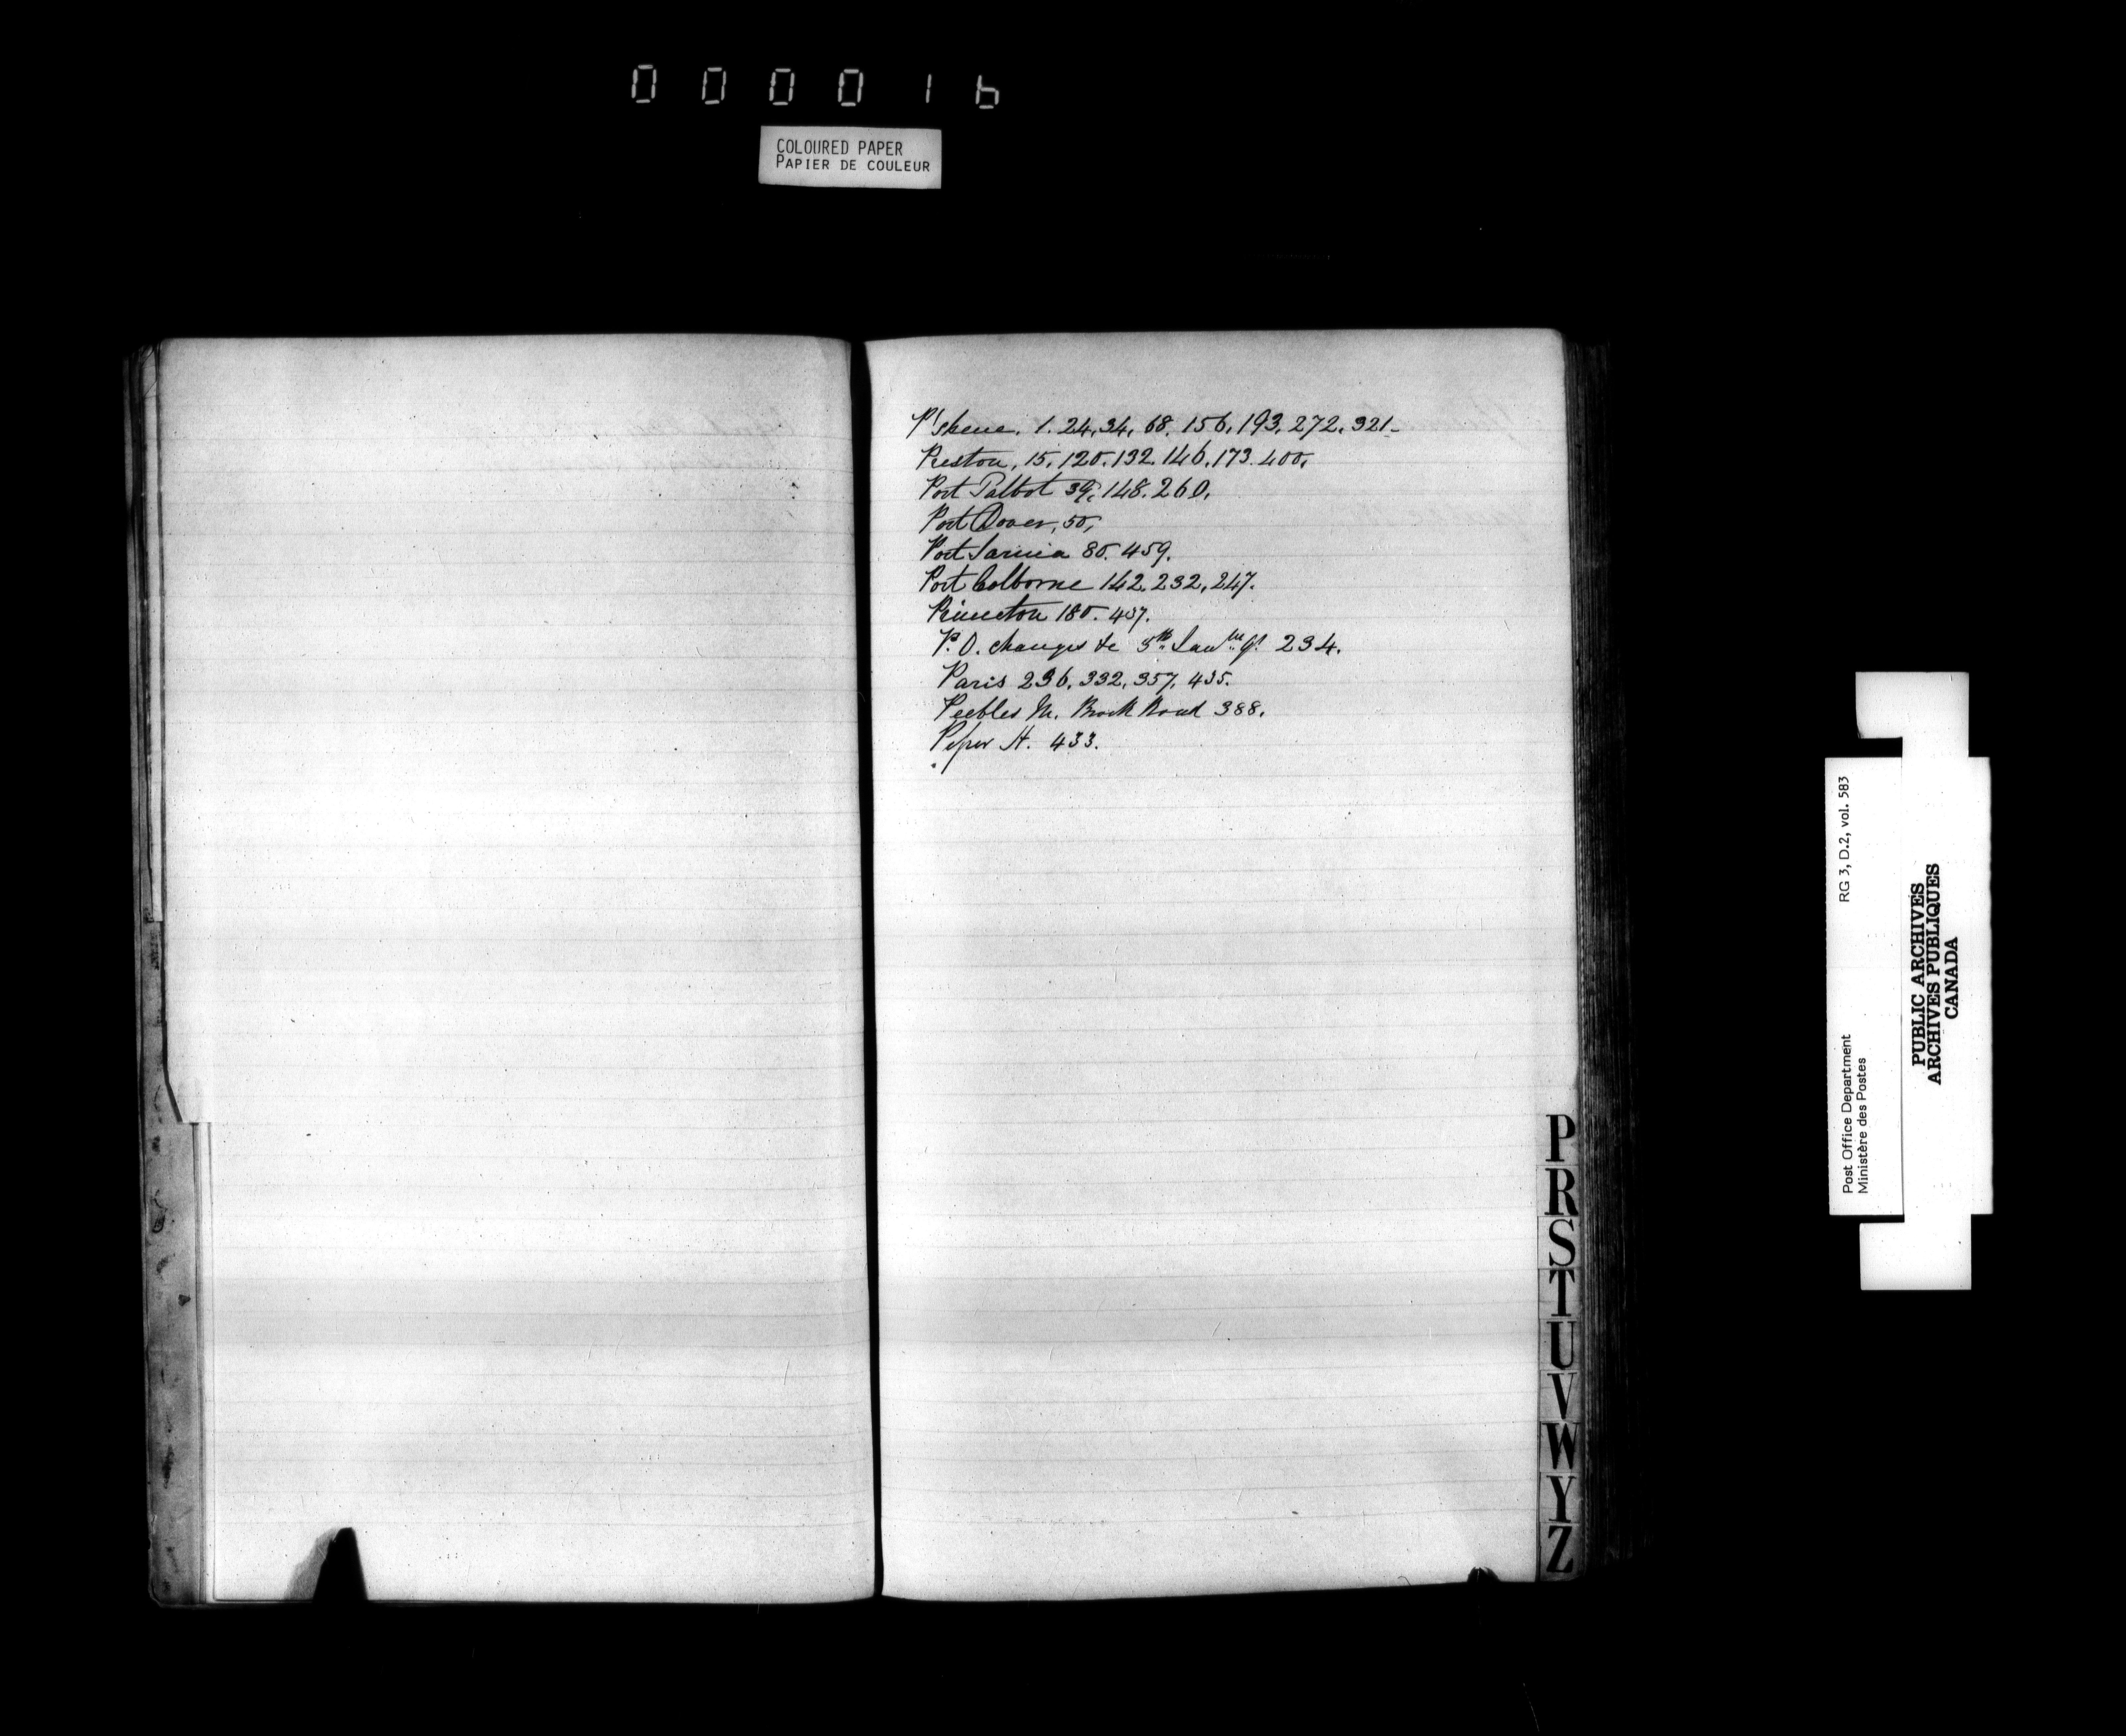 000016
COLOURED PAPER
PAPIER DE COULEUR
P'skene. 1. 24, 34, 68. 156, 193. 272. 321-
Preston, 15, 120. 132. 146. 173. 400,
Port Talbot 39, 148. 260.
Port Dover, 50,
Port Sarnia 80. 459.
Port Colborne 142. 232, 247.
Princeton 180. 437.
P.O. changes &c 5th 234.
Paris 236. 332, 357, 435.
Peebles M. Brock Road 388.
H. 433.
P
R
S
T
U
V
W
Y
Z
Post Office Department RG 3, D.2, vol. 583
Ministère des Postes
PUBLIC ARCHIVES
ARCHIVES PUBLIQUES
CANADA